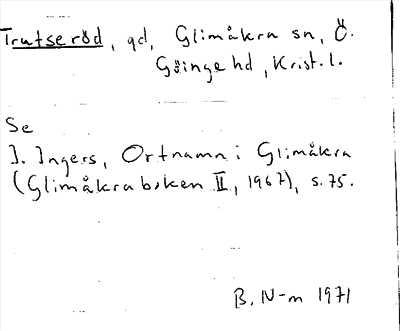 Trutseröd, gd, Glimåkra sn, Ö.
Göinge hd, Krist. l.
Se
I. Ingers, Ortnamn i Glimåkra
(Glimåkraboken II, 1967), s. 75.
B. N-m 1971